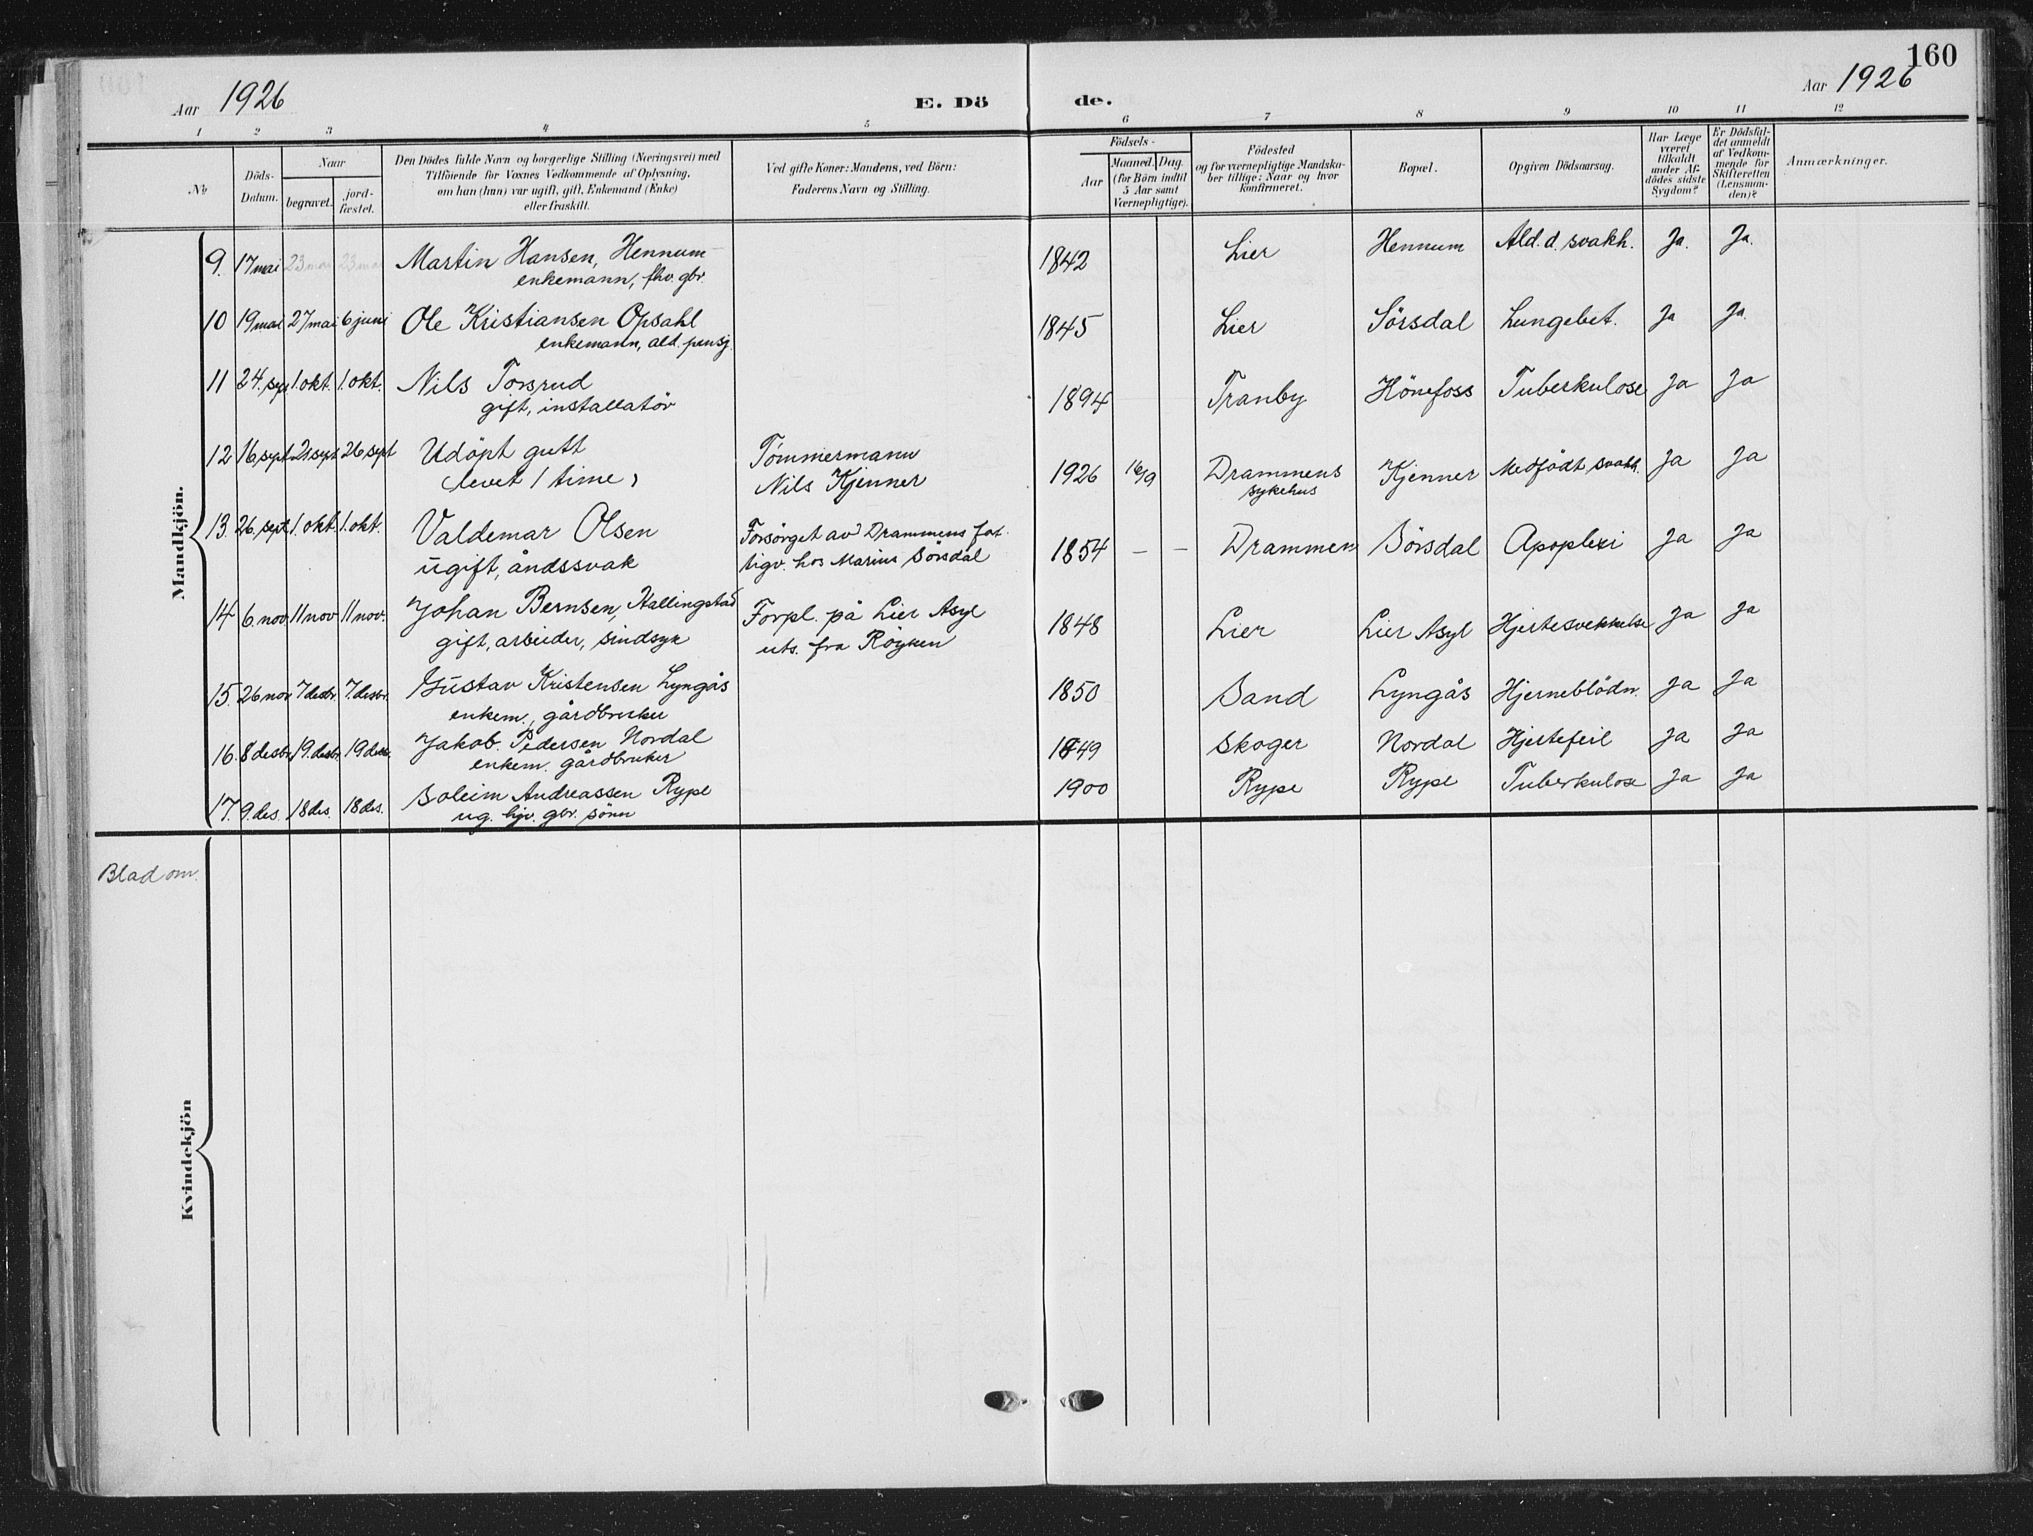 160
Aar 1926
E. Dö
de.
Aar 1926
1 2 3 4 5 6 7 8 9 10 11 12
№
Döds-
Datum.
Naar
begravet.
jord-
fæstet.
Den Dödes fulde Navn og borgerlige Stilling (Næringsvei) med
Tilföiende for Voxnes Vedkommende af Oplysning,
om han (hun) var ugift, gift, Enkemand (Enke)
eller fraskilt.
Ved gifte Koner: Mandens, ved Börn:
Faderens Navn og Stilling.
Födsels-
Aar
Maaned.
Dag.
(for Börn indtil
5 Aar samt
Værnepligtige).
Födested
og for værnepligtige Mandska-
ber tillige: Naar og hvor
konfirmeret.
Bopæl.
Opgiven Dödsaarsag.
Har Læge
været
tilkaldt
under Af-
dödes sidste
Sygdom?
Er Dödsfal-
det anmeldt
af Vedkom-
mende for
Skifteretten
(Lensman-
den)?
Anmærkninger.
Mandkjön.
9. 17 mai 23 mai 23 mai Martin Hansen, Hennum 1842 Lier Hennum Ald. d. svakh. Ja. Ja.
enkemann, fhv. gbr.
10 19 mai 27 mai 6 juni Ole Kristiansen Opsahl 1845 Lier Sörsdal Lungebet. Ja Ja.
enkemann, ald. pensj.
11 24. sept 1. okt. 1. okt. Nils Torsrud 1894 Tranby Hönefoss Tuberkulose Ja Ja
gift, installatör
12 16. sept 21. sept 26. sept Udöpt gutt Tömmermann 1926 16/9 Drammens Kjenner Medfödt svakh. Ja Ja
levet 1 time, Nils Kjenner sykehus
13. 26. sept. 1. okt. 1. okt. Valdemar Olsen Forsörget av Drammens fat- 1854 — — Drammen Sörsdal Apoplexi Ja Ja
ugift, åndssvak tigv. hos Marius Sörsdal
14 6. nov 11 nov 11 nov. Johan Bernsen, Hallingstad Forpl. på Lier Asyl 1848 Lier Lier Asyl Hjertesvekkelse Ja Ja
gift, arbeider, sindsyk uts. fra Röyken
15. 26 nov 7 desbr. 7. desbr. Gustav Kristensen Lyngås 1850 Sand Lyngås Hjerneblödn. Ja Ja
enkem., gårdbruker
16. 8 desbr. 19. desbr. 19 desbr. Jakob Pedersen Nordal 1849 Skoger Nordal Hjertefeil Ja Ja
enkem. gårdbruker
17. 9. des. 18 des. 18 des. Soleim Andreassen Rype 1900 Rype Rype Tuberkulose Ja Ja
ug. hjv. gbr. sönn
Blad om.
Kvindekjön